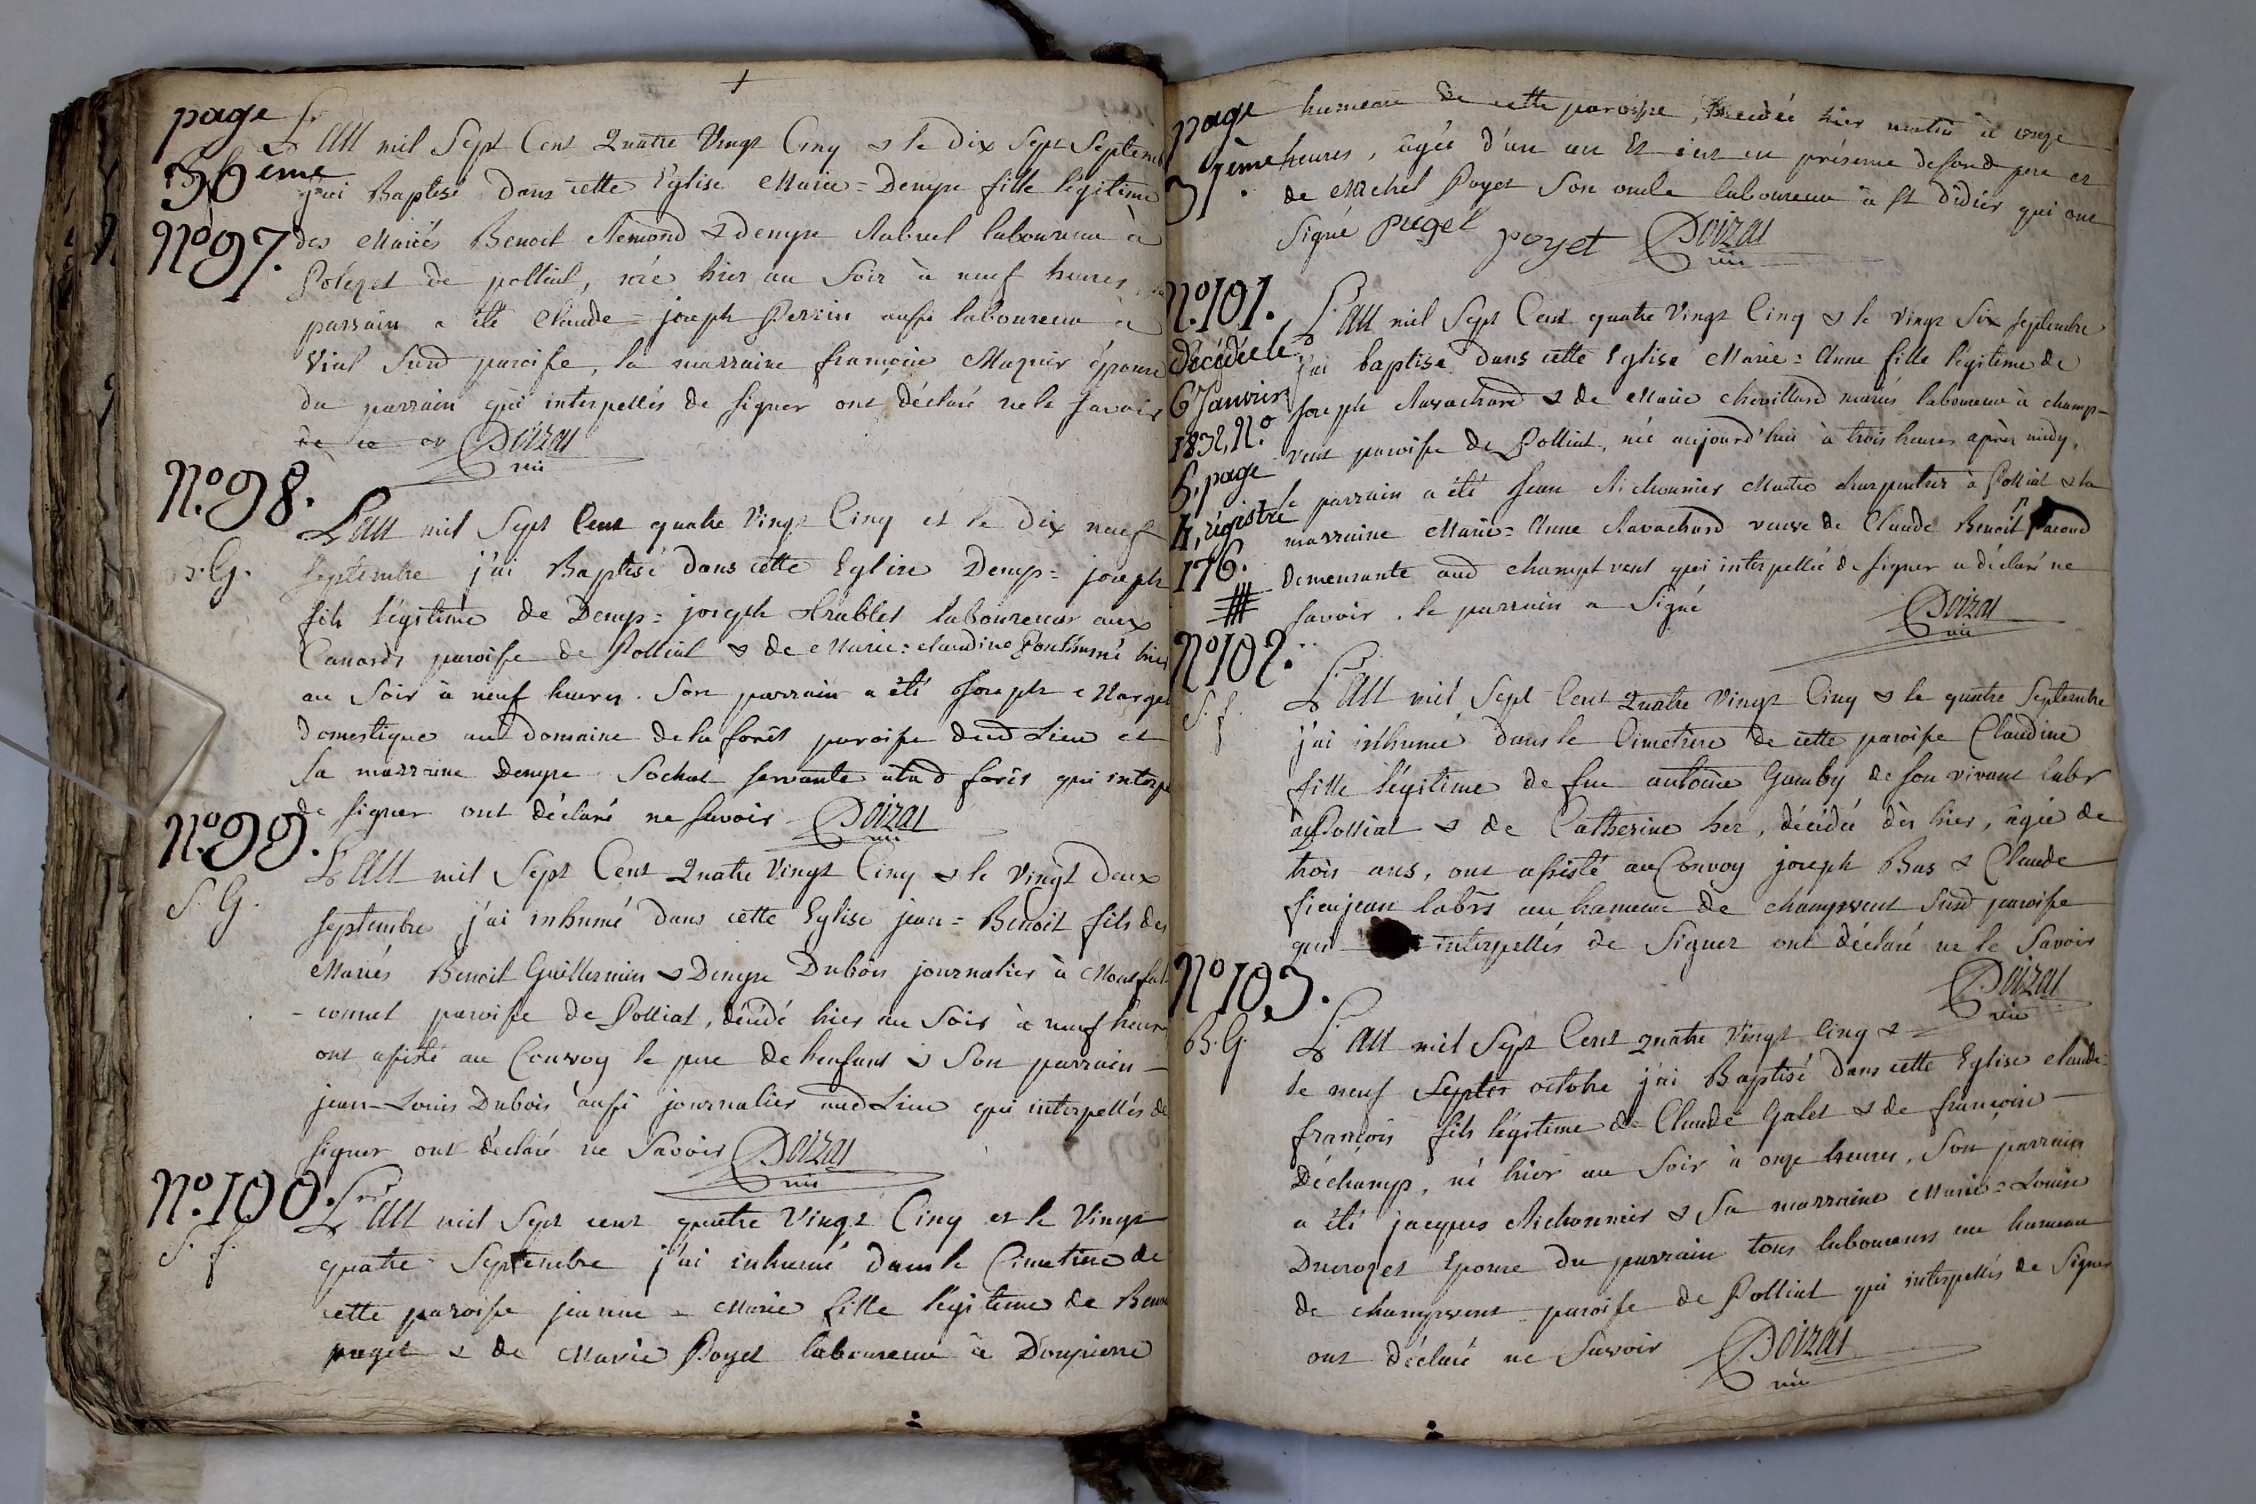 page
36eme
N.º 97.
L'an mil Sept Cent Quatre Vingt Cinq & le dix Sept Septemb
j'ai Baptisé dans cette Eglise Marie = Denyse fille légitime
des Mariés Benoit Rémond & Denyse laboureur à
Polezet de polliat, née hier au Soir à neuf heures,
parrain a été Claude = joseph Perrin aussi laboureur à
Vial Susd paroisse, la marraine françoise Mazuir épouse
du parrain qui interpellés de signer ont déclaré ne le savoir
Poizat
vic
N.º 98.
S. G.
L'an mil Sept Cent quatre Vingt Cinq et le dix neuf
septembre j'ai Baptisé dans cette Eglise Denys = joseph
fils légitime de Denys = joseph labourenar aux
Canards paroisse de Polliat & de Marie = claudine hier
au Soir à neuf heures. Son parrain a été Joseph
domestique au domaine de la forêt paroisse dud Lieu et
Sa marraine Denyse Sochat servante alad forêt qui interpe
de signer ont déclaré ne savoir Poizat
vic
N.º 99.
S. G.
L'an mil Sept Cent Quatre Vingt Cinq & le Vingt Deux
septembre j'ai inhumé dans cette Eglise jean = Benoit fils des
Mariés Benoit Guillermin & Denyse Dubois journalier à Montfal
- connet paroisse de Polliat, décédé hier au Soir à neuf heures
ont assisté au Convoy le pere de l'enfant & Son parrain -
jean - Louis Dubois aussi journalier aud Lieu qui interpellés de
signer ont déclaré ne Savoir Poizat
vic
N.º 100.
S. f.
L'an mil Sept cent quatre Vingt Cinq et le Vingt
quatre Septembre j'ai inhumé dans le Cimetiere de
cette paroisse jeanne = Marie fille légitime de Benoi
puget & de Marie Poyet laboureur à Dompierre
page
37ème
hameau de cette paroisse, décédée hier matin à onze
heures, âgée d'un an Et ceci en présence de sond pere et
de Michel Poyet Son oncle laboureur à St didier qui ont
Signé Puget poyet Poizat
vic
N.º 101.
décédée le
6 Janvier
1832, N.º
5, page
4, régistre
176.
L'an mil Sept Cent quatre Vingt Cinq & le Vingt Six septembre
j'ai baptisé dans cette Eglise Marie = Anne fille légitime de
Joseph Ravachard & de Marie chevillard mariés laboureur à champ-
vent paroisse de Polliat, née aujourd'hui à trois heures après midy,
le parrain a été Jean Richonnier Maitre charpentier à Polliat & la
marraine Marie = Anne Ravachard veuve de Claude Benoit
demeurante aud champtvent qui interpellée de signer a déclaré ne
savoir, le parrain a Signé Poizat
vic
N.º 102.
S. f.
L'an mil Sept Cent Quatre Vingt Cinq & le quatre Septembre
j'ai inhumé dans le Cimetiere de cette paroisse Claudine
fille légitime de feu antoine Gamby de son vivant labr
à Polliat & de Catherine hez, décédée dès hier, âgée de
trois ans, ont assisté au Convoy joseph Bas & Claude
fieujean labrs au hameau de champvent Susd paroisse
qui interpellés de Signer ont déclaré ne le Savoir
Poizat
vic
N.º 103.
B. G.
L'an mil Sept Cent quatre Vingt Cinq &
le neuf Septe octobre j'ai Baptisé dans cette Eglise claude =
françois fils légitime de Claude Galet & de françoise -
Déchamp, né hier au Soir à onze heures, Son parrain
a été jacques Richonnier & Sa marraine Marie = Louise
Ducrozet Epouse du parrain tous laboureurs au hameau
de champvent paroisse de Polliat qui interpellés de Signer
ont déclaré ne Savoir Poizat
vic